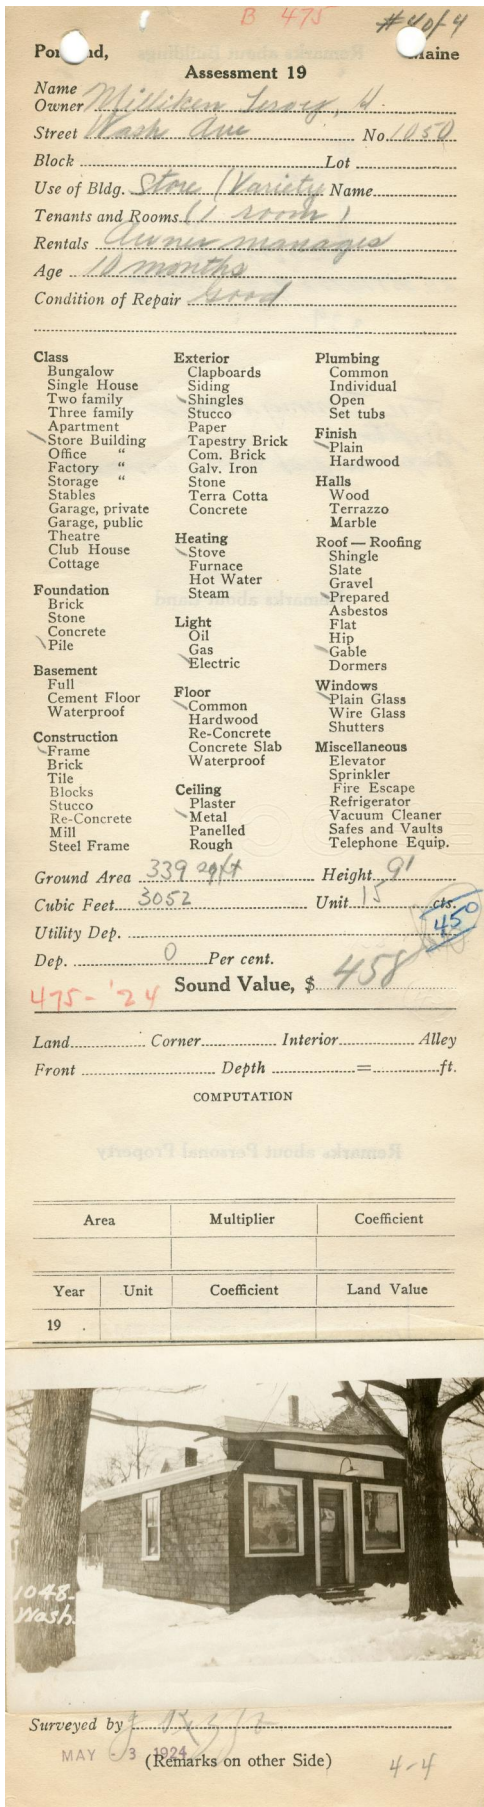 B 475
#4 of 4
Maine
Assessment 19
Name
Owner Milliken H.
Street Wash Ave No. 1050
Block Lot
Use of Bldg. Store (Variety Name
Tenants and Rooms (1 room)
Rentals Owner manages
Age 10 months
Condition of Repair Good
Class
Bungalow
Single House
Two family
Three family
Apartment
Store Building
Office "
Factory "
Storage "
Stables
Garage, private
Garage, public
Theatre
Club House
Cottage
Foundation
Brick
Stone
Concrete
Pile
Basement
Full
Cement Floor
Waterproof
Construction
Frame
Brick
Tile
Blocks
Stucco
Re-Concrete
Mill
Steel Frame
Exterior
Clapboards
Siding
Shingles
Stucco
Paper
Tapestry Brick
Com. Brick
Galv. Iron
Stone
Terra Cotta
Concrete
Heating
Stove
Furnace
Hot Water
Steam
Light
Oil
Gas
Electric
Floor
Common
Hardwood
Re-Concrete
Concrete Slab
Waterproof
Ceiling
Plaster
Metal
Panelled
Rough
Plumbing
Common
Individual
Open
Set tubs
Finish
Plain
Hardwood
Halls
Wood
Terrazzo
Marble
Roof — Roofing
Shingle
Slate
Gravel
Prepared
Asbestos
Flat
Hip
Gable
Dormers
Windows
Plain Glass
Wire Glass
Shutters
Miscellaneous
Elevator
Sprinkler
Fire Escape
Refrigerator
Vacuum Cleaner
Safes and Vaults
Telephone Equip.
Ground Area 339 sq ft Height 9'
Cubic Feet 3052 Unit 15 cts.
450
Utility Dep.
Dep. 0 Per cent.
475 - '24 Sound Value, $ 458
Land Corner Interior Alley
Front Depth = ft.
COMPUTATION
Area Multiplier Coefficient
Year Unit Coefficient Land Value
19 .
1048-
Wash.
Surveyed by
MAY - 3 1924
(Remarks on other Side)
4-4